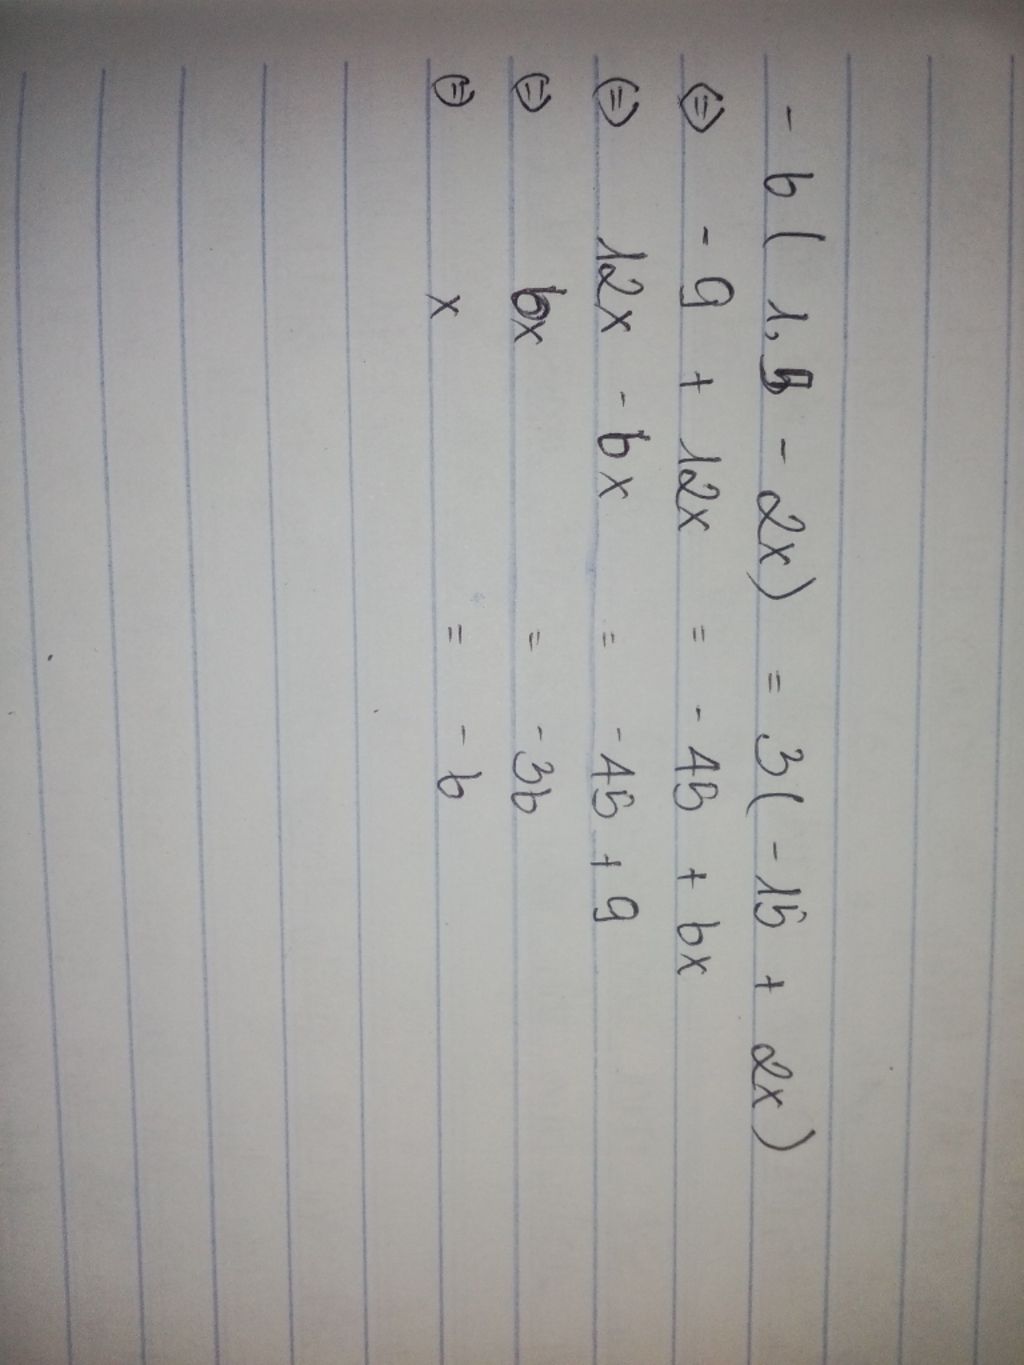 - 6 ( 1,5 - 2x) = 3 ( - 15 + 2x)
⇔ - 9 + 12x = - 45 + 6x
⇔ 12x - 6x = - 45 + 9
⇔ 6x = - 36
⇔ x = - 6